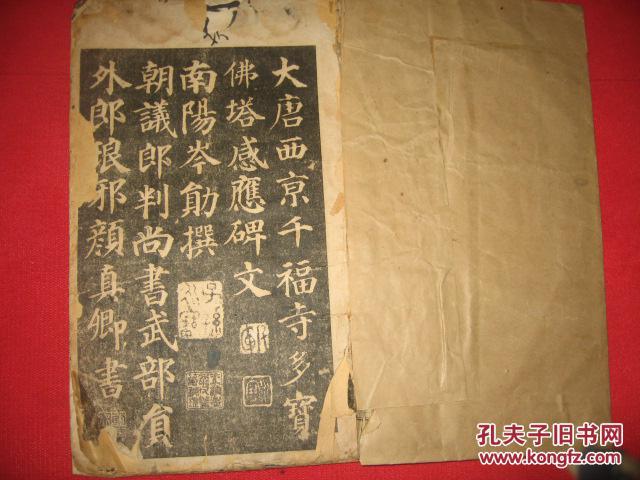 大唐西京千福寺多寶
佛塔感應碑文
南陽岑勛撰
朝議郎判尚書武部員
外郎琅邪顏真卿書
孔夫子旧书网
www.kongfz.com